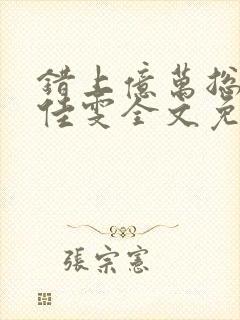 錯上億萬總
佳雯全文免
張宗憲